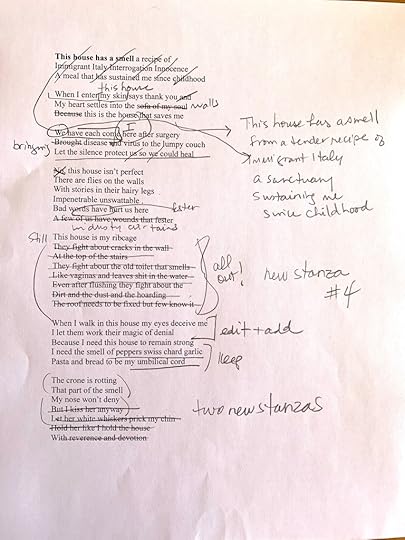 This house has a smell a recipe of
Immigrant Italy Interrogation Innocence
A meal that has sustained me since childhood
this house
When I enter my skin says thank you and
My heart settles into the sofa of my soul walls
Because this is the house that saves me
I
We have each come here after surgery
bringing Brought disease and virus to the lumpy couch
Let the silence protect us so we could heal
This house has a smell
from a tender recipe of
immigrant Italy
a sanctuary
sustaining me
since childhood
No, this house isn't perfect
There are flies on the walls
With stories in their hairy legs
Impenetrable unswattable
Bad words have hurt us here fester
A few of us have wounds that fester
in dusty curtains
Still This house is my ribcage
They fight about cracks in the wall
At the top of the stairs
They fight about the old toilet that smells
Like vaginas and leaves shit in the water
Even after flushing they fight about the
Dirt and the dust and the hoarding
The roof needs to be fixed but few know it
all out!
new stanza
#4
When I walk in this house my eyes deceive me
I let them work their magic of denial
edit + add
Because I need this house to remain strong
I need the smell of peppers swiss chard garlic
Pasta and bread to be my umbilical cord
keep
The crone is rotting
That part of the smell
My nose won't deny
But I kiss her anyway
Let her white whiskers prick my chin
Hold her like I hold the house
With reverence and devotion
two new stanzas